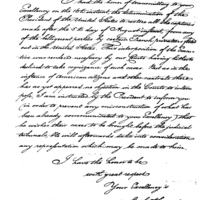 I had the honor of communicating to your
Excellency on the 10th instant the determination of the
President of the United States to restore all the captures
made after the 5th day of August instant, of
of the belligerent parties by certain French privateers
out in the United States. This interposition of the Execu-
tive was rendered necessary by our Courts having hitherto
declined to take cognizance of such cases. But as in this
instance of American citizens and other neutrals there
has as yet appeared no objection in the Courts to inter-
pose, I am instructed by the President to inform you
(in order to prevent any misconstruction of what has
been already communicated to your Excellency) that he
wishes these cases to be brought before the judicial
tribunals. He will afterwards take into consideration
any representation which may be made to him.
I have the honor to be
with great respect
Your Excellency's